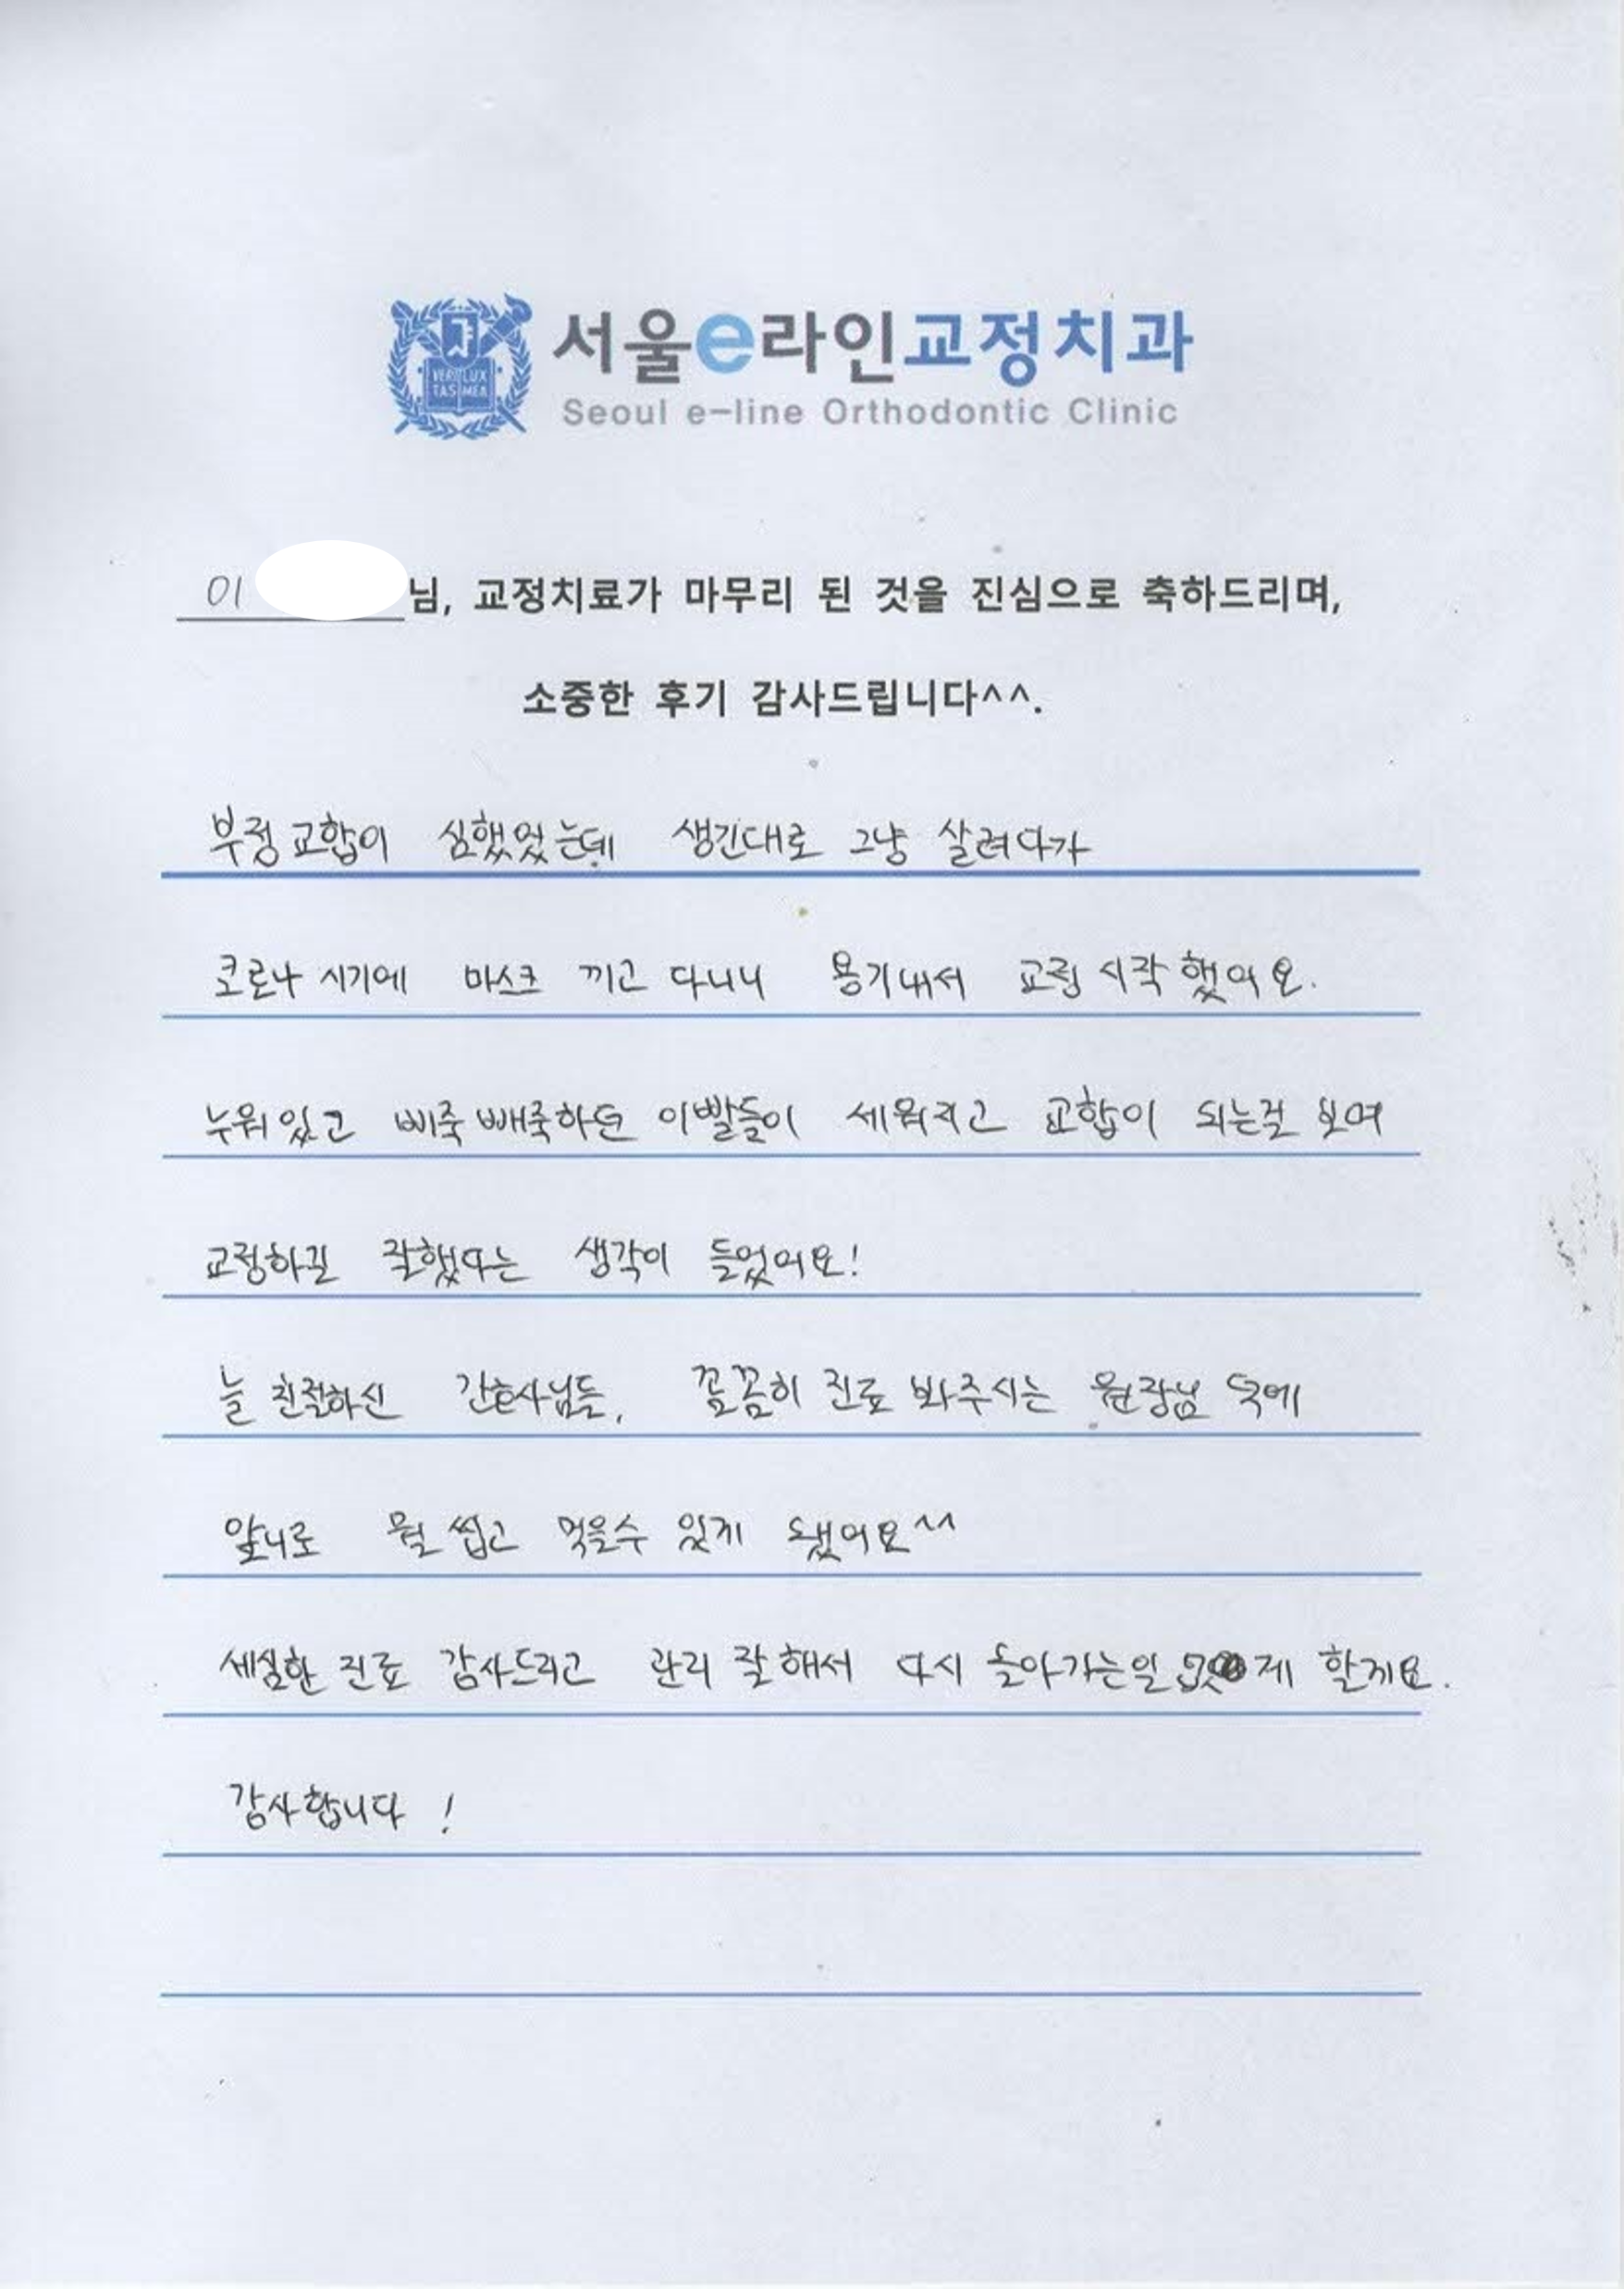 서울e라인교정치과
Seoul e-line Orthodontic Clinic
VERI LUX
TAS MEA
이 님, 교정치료가 마무리 된 것을 진심으로 축하드리며,
소중한 후기 감사드립니다^^.
부정교합이 심했었는데 생긴대로 그냥 살려다가
코로나 시기에 마스크 끼고 다니니 용기내서 교정 시작했어요.
누워있고 삐죽빼죽하던 이빨들이 세워지고 교합이 되는걸 보며
교정하길 잘했다는 생각이 들었어요!
늘 친절하신 간호사님들, 꼼꼼히 진료 봐주시는 원장님 덕에
앞니로 뭘 씹고 먹을수 있게 됐어요^^
세심한 진료 감사드리고 관리 잘해서 다시 돌아가는일 할게요.
감사합니다 !